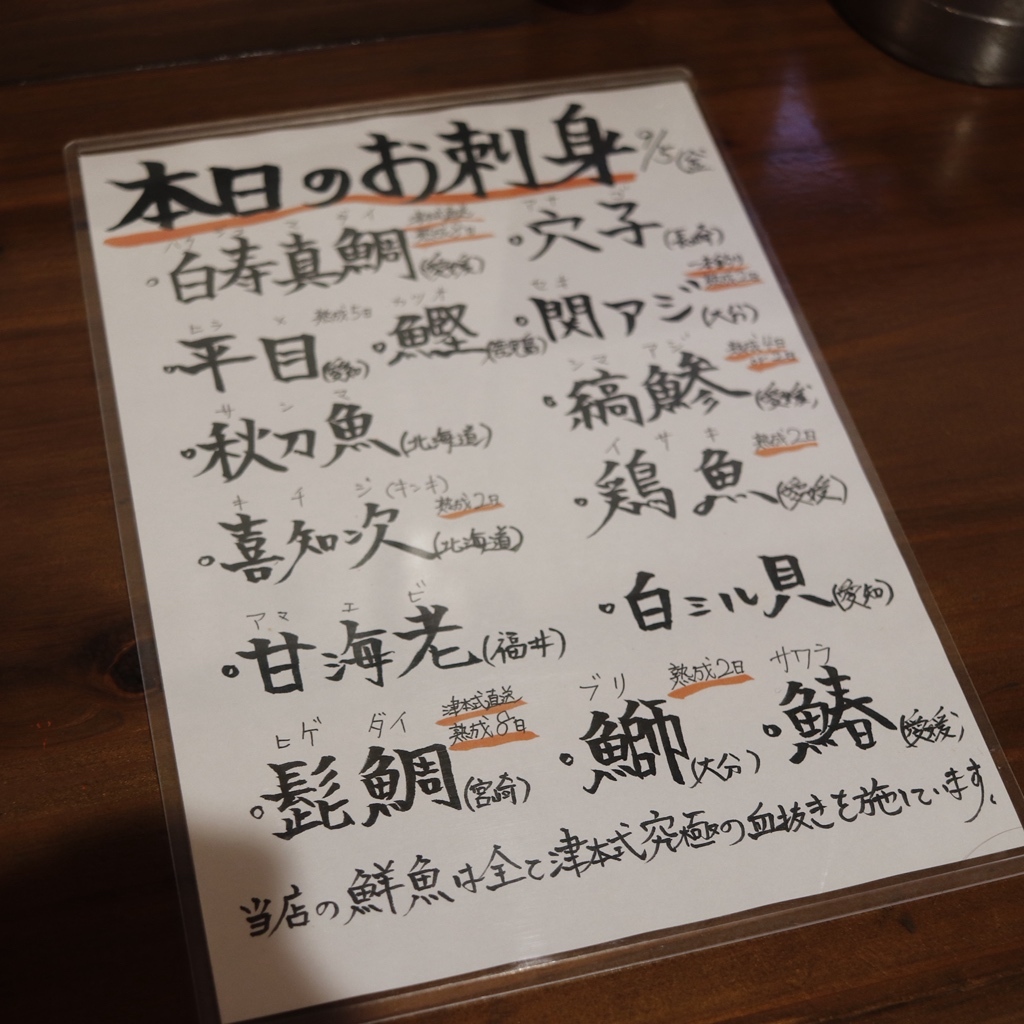 本日のお刺身 9/5(金)
ハクジュマダイ
・白寿真鯛(愛媛)
アナゴ
・穴子(長崎)
ヒラメ 熟成5日
・平目(愛知)
カツオ
・鰹
セキ
・関アジ(大分)
サンマ
・秋刀魚(北海道)
シマアジ 熟成4日
・縞鯵(愛媛)
キチジ(キンキ) 熟成2日
・喜知次(北海道)
イサキ 熟成2日
・鶏魚(愛媛)
アマエビ
・甘海老(福井)
・白ミル貝(愛知)
ヒゲダイ 津本式直送 熟成8日
・髭鯛(宮崎)
ブリ 熟成2日
・鰤(大分)
サワラ
・鰆(愛媛)
当店の鮮魚は全て津本式究極の血抜きを施しています。